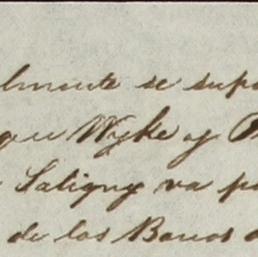 lmente se supo
que Wyke y P
Saligny va pa
de los Bonos d